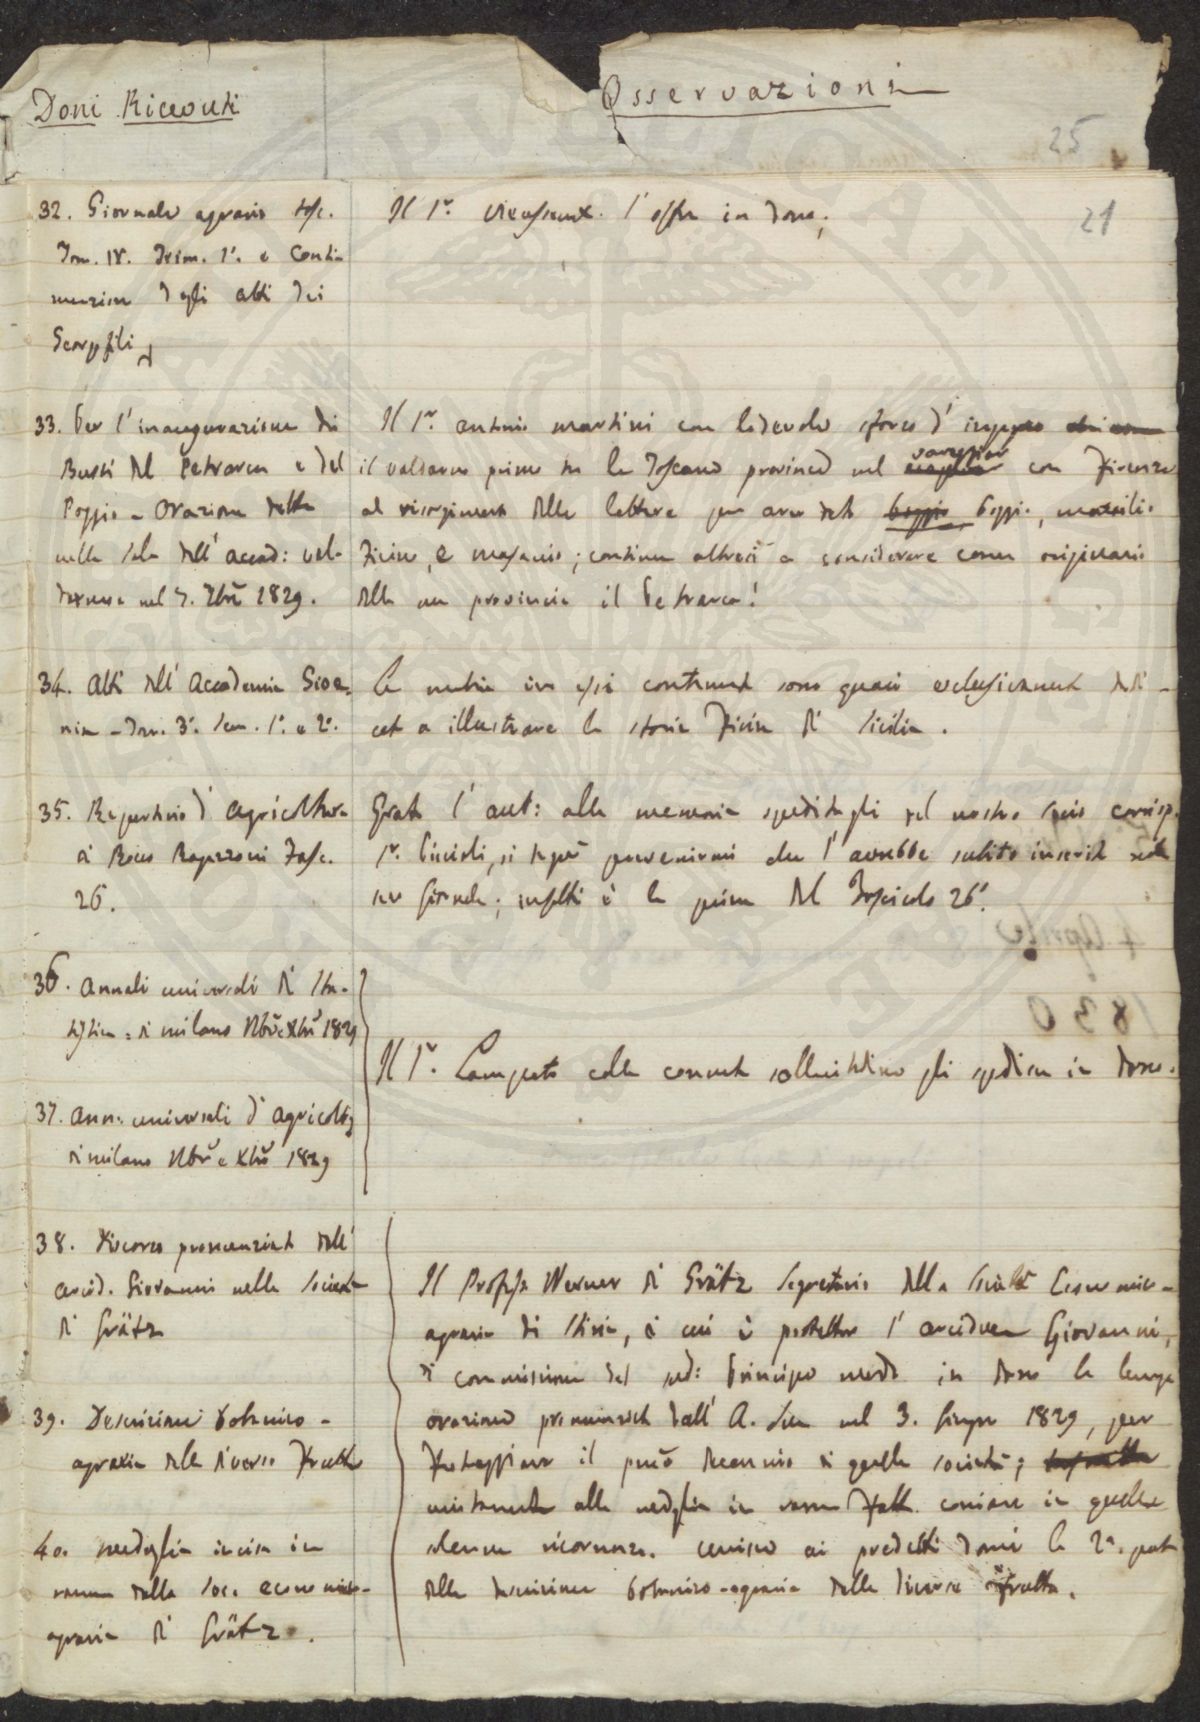 Doni Ricevuti
Osservazioni
25
21
32. Giornale agrario tosc.
Tom. IV. Trim. 1°. e Conti-
nuazione degli atti dei
Georgofili
Il Sr. Vieusseux l'offre in dono;
33. Per l'inaugurazione dei
Busti del Petrarca e del
Poggio - Orazione detta
nella sala dell' accad: val-
darnese nel 7. 7bre 1829.
Il Sr. Antonio Martini con lodevole sforzo d'ingegno
il valdarno primo tra le Toscane province nel vareggiar con Firenze
al risorgimento delle lettere per aver dato Poggio, Marsilio
Ficino, e Masaccio; continua altresì a considerare come originario
della sua provincia il Petrarca!
34. Atti dell' Accademia Gioe-
nia - Tom. 3°. Sem. 1°. e 2°.
Le materie ivi contenute sono quasi esclusivamente dedi-
cate a illustrare la storia fisica di Sicilia.
35. Repertorio d'agricoltura
di Rocco Ragazzoni Fasc.
26.
Grato l'aut: alla memoria speditagli dal nostro socio corrisp.
Sr. Lucioli, si prevenirmi che l'avrebbe subito inserita nel
suo giornale; infatti è la prima del Fascicolo 26°.
36. Annali universali di Sta-
tistica = di Milano 9bre e Xbre 1829
37. Ann: universali d'agricolt.
di Milano 9bre e Xbre 1829
Il Sr. Lampato colla consueta sollecitudine gli spedisce in dono.
4 Aprile
1830
38. Discorso pronunziato dall'
arcid. Giovanni nella Società
di Grätz
39. Descrizione botanico-
agraria delle diverse frutta
40. Medaglia incisa in
rame dalla Soc. economico-
agraria di Grätz.
Il Profess. Werner di Grätz Segretario della Società Economico-
agraria di Stiria, di cui è protettore l'arciduca Giovanni,
di commissione del sud: Principe manda in dono la lunga
orazione pronunziata dall' A. Sua nel 3. Giugno 1829, per
festeggiare il primo decennio di quella società;
unitamente alla medaglia in rame fatta coniare in quella
solenne ricorrenza. unisce ai predetti doni la 2ª. parte
della descrizione botanico-agraria delle diverse frutta.